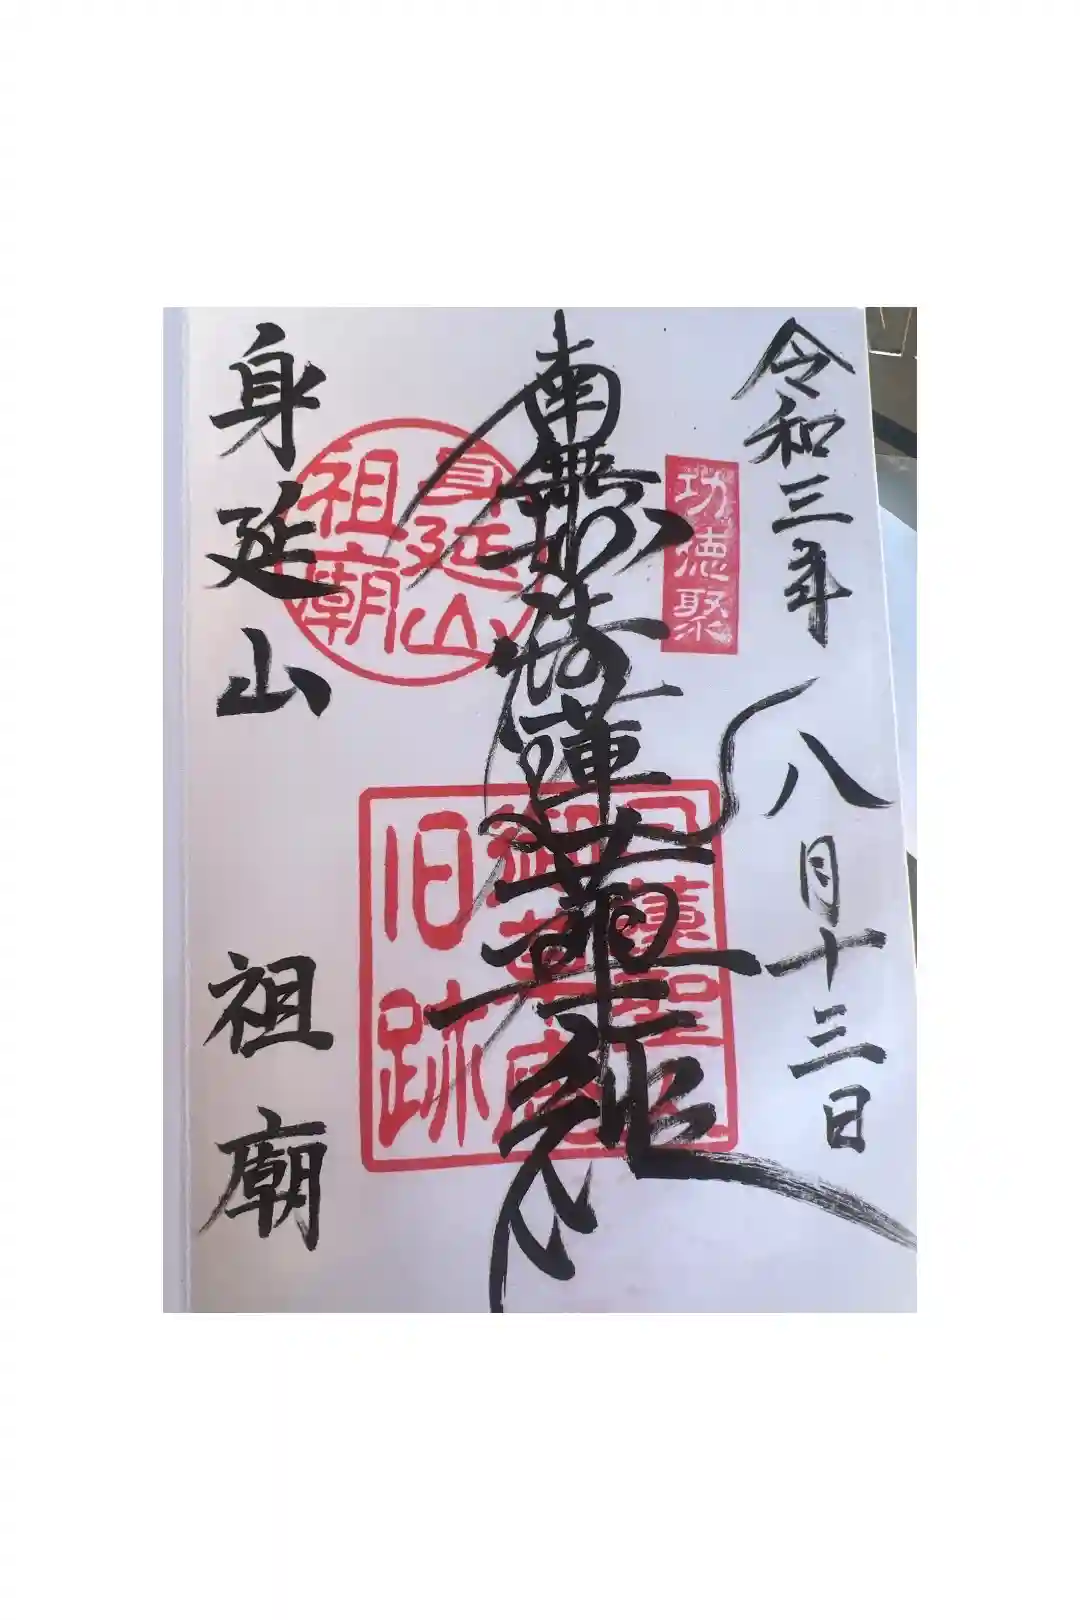 令和三年八月十三日
功徳聚
南無妙法蓮華経
身延山
祖廟
日蓮聖人
御草庵
旧跡
身延山 祖廟